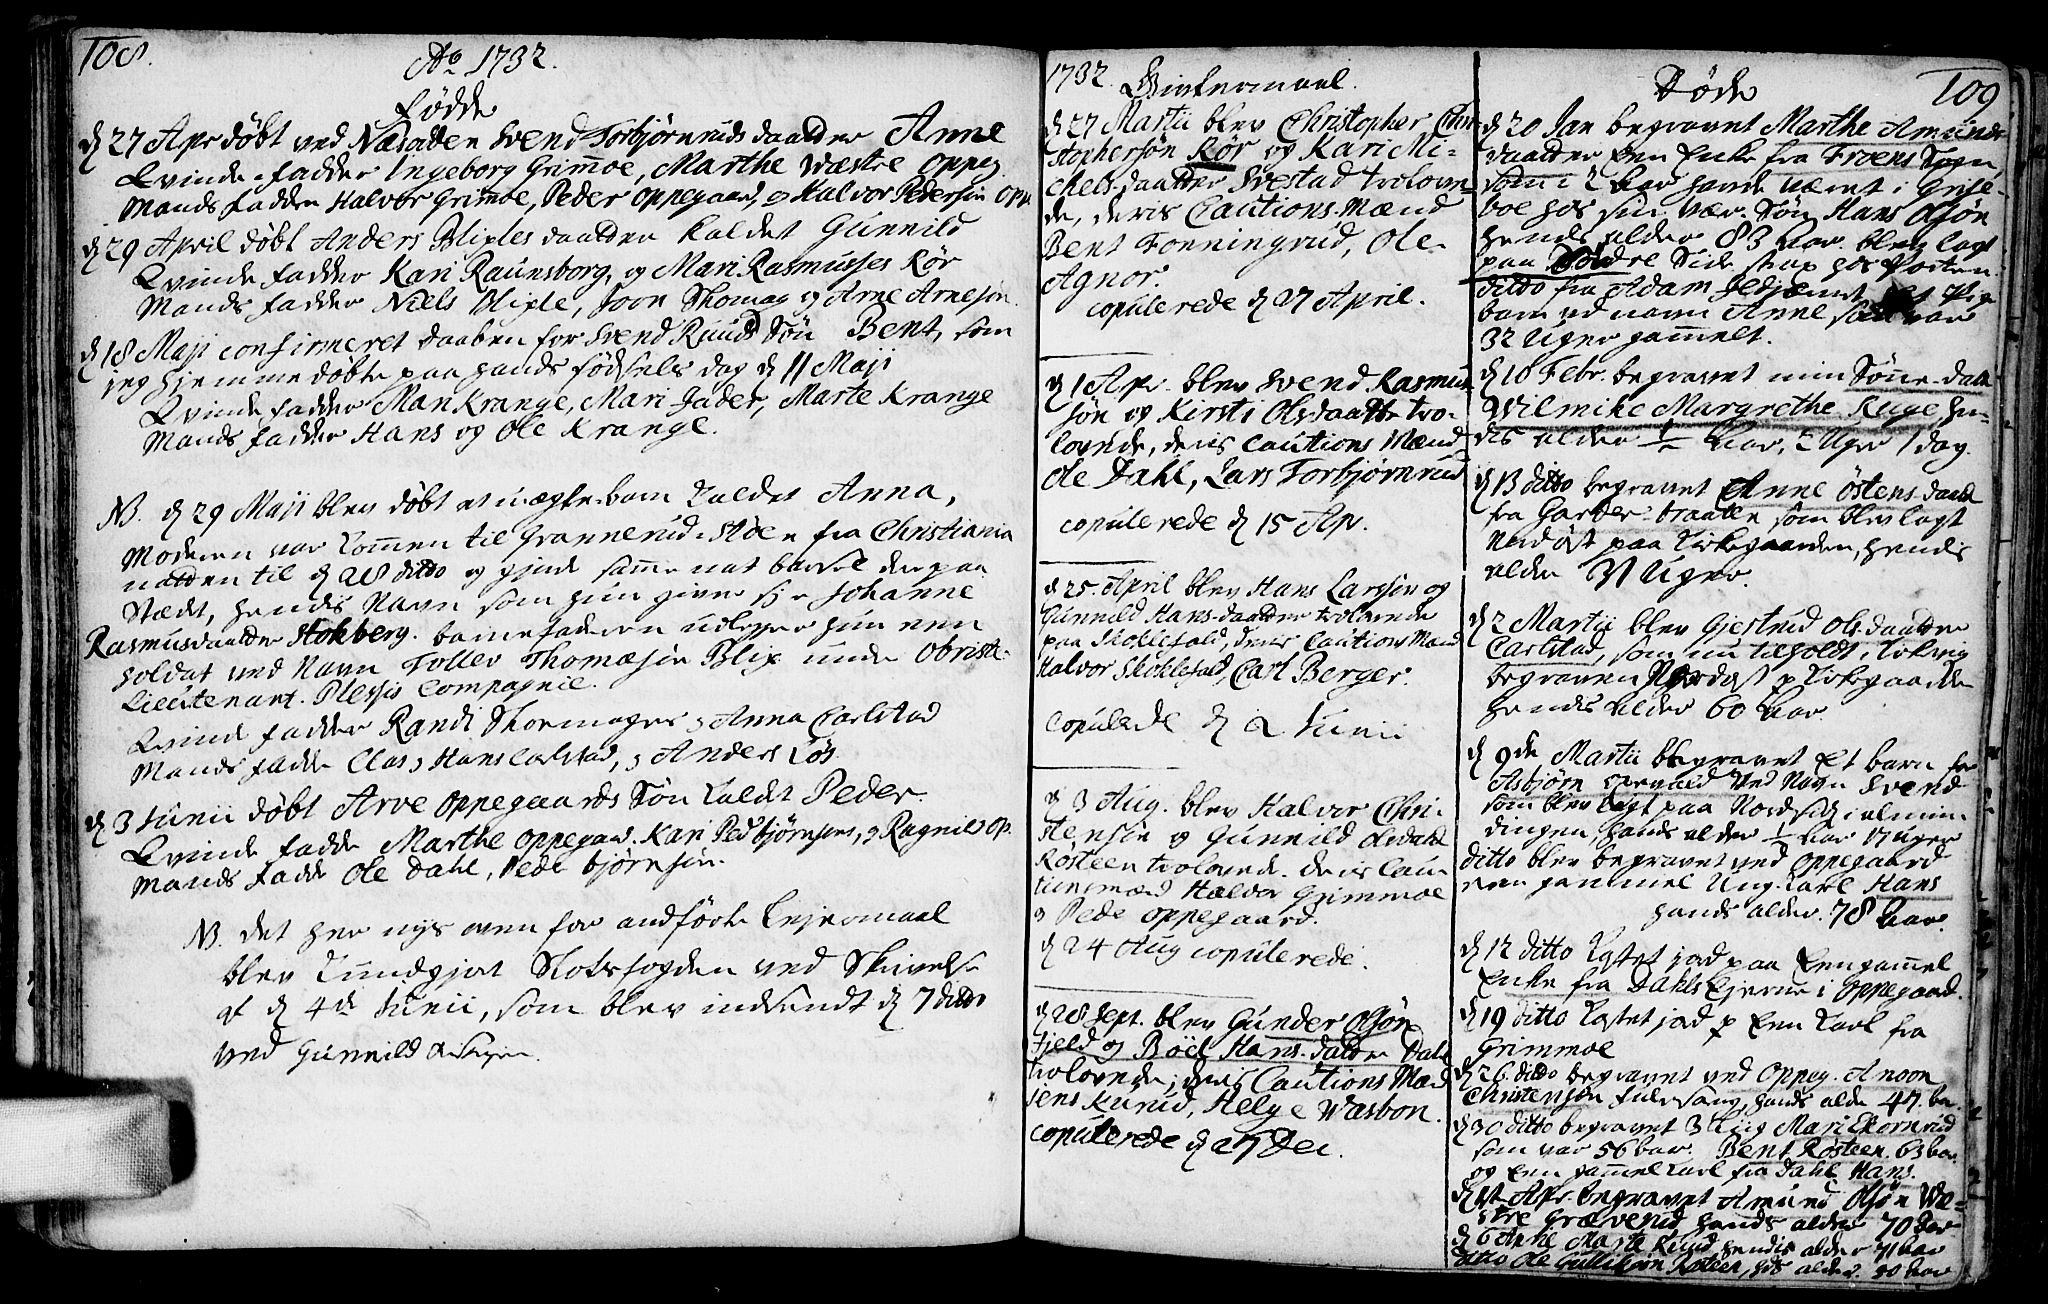 108.
Ao 1732.
Fødde
d 27 Apr døbt ved Næsodden Svend Torbjørnruds daatter Anne
Qvinde fadder Ingeborg Grimoe, Marthe Wæstre Oppeg
Mands fadder Halvor Grimoe, Peder Oppegaard, og Halvor Pedersøn Opp
d 29 April døbt Anders Blixles daatter kaldet Gunnild
Qvinde fadder Kari Raunsborg, og Mari Rasmusses Rør
Mands fadder Niels Blixle, Joon Thomas og Arne Arnesøn
d 18 Maji confirmeret daaben for Svend Ruuds Søn Bent, som
jeg hjemme døbte paa hands fødsels dag d 11 Maji
Qvinde fadder Mari Krange, Mari Jader, Marte Krange
Mands fadder Hans og Ole Krange.
NB. d 29 Maji blev døbt et uægte barn kaldet Anna,
Moderen var kommen til Grannerud fra Christiania
natten til d 28 ditto og giorde samme nat barsel der paa
Stædet, hendis Navn som hun giver sig Johanne
Rasmusdaatter Stokberg. barnefaderen udlegger hun en
Soldat ved Navn Tollev Thomæsøn Blix under Obrist
Lieutenant Plessis Compagnie.
Qvinde fadder Randi Skoemagers, Anna Carlstad
Mands fadder Clas, Hans Carlstad, Anders Løs
d 3 Junii døbt Arve Oppegaards Søn kaldet Peder.
Qvinde fadder Marthe Oppegaard, Kari Ped bjørnsens, og Ragnild Op.
Mands fadder Ole Dahl, Peder bjørnsøn
NB. det her nys oven for andførte Lejermaal
blev kundgjort Slotsfogden ved Skrivelse
af d 4de Junii, som blev indsendt d 7 ditto
ved Gunnild
1732.
d 27 Martii blev Christopher Chri
stophersøn Rør og Kari Mi-
chels daatter Svestad trolove
de, deris Cautions Mænd
Bent Fonningrud, Ole
Agnor.
copulerede d 27 April.
d 1 Apr. blev Svend Rasmus
søn og Kirsti Olsdaatter tro-
lovede, deris Cautions Mænd
Ole Dahl, Lars Torbjørnrud
copulerede d 15 Apr.
d 25. April blev Hans Larssøn og
Gunnild Hans daatter trolovede
paa Skoklefald, deris Cautions Mænd
Halvor Skoklefald, Carl Berger.
copulerede d 2 Junii
d 3 Aug. blev Halvor Chri-
stensøn og Gunnild Olsdaatter
Røsteen trolovede. deris Cau-
tionsmænd Halvor Grimmoe
og Peder Oppegaard.
d 24 Aug copulerede.
d 28 Sept. blev Gunder Olsøn
Fjeld og Bøel Hans daatter Dahl
trolovede; deris Cautions Mænd
Jens Kurud, Helge Wasbon.
copulerede d 27 Dec.
Døde
109
d 20 Jan begravet Marthe Amunds
daatter Een Enke fra Froens Sogn
som i 2 Aar havde været i
boe hos sin Søn Hans Olsøn
hendis alder 83 Aar. blev lagt
paa Søndre Side
ditto fra Adam et Pige
barn ved navn Anne som var
32 Uger gammelt.
d 10 Febr. begravet min Sønne daatter
Wilmike Margrethe Ruge hen-
dis alder 1/2 Aar, 2 Uger 1 dag.
d 13 ditto begravet Anne Østens daatter
fra Garder braaten som blev lagt
Nordost paa Kirkegaarden, hendis
alder Uger.
d 2 Martii blev Gjertrud Ols daatter
Carlstad, som nu tilholdt i
begraven Nordost p Kirkegaarden
hendis alder 60 Aar.
d 9de Martii begravet Et barn fra
Asbjørn ved Navn Svend
som blev lagt paa Nordside i almin-
dingen, hands alder 1/2 Aar 17 uger
ditto blev begravet ved Oppegaard
een gammel Ung. karl Hans
hands alder. 78 Aar.
d 12 ditto kastet jord paa Een gammel
Enke fra Dahls Ejerne i Oppegaard.
d 19 ditto kastet jord p Een karl fra
Grimmoe
d 26. ditto begravet ved Oppeg. Anoon
Christensøn Fuglesang, hands alder 47. Aar
d 30 ditto begravet 3 Lig Mari Ekornrud
som var 56 Aar. Bent Røsteen, 63 Aar
og een gammel karl fra Dahl Hans.
d 1st Apr. begravet Amund Olsøn Wæ-
stre Grævenud hands alder 70 Aar
d 6 Aprile Marte Ruud hendis alder 71 Aar
ditto Ole Gulliksøn Røsteen, hds alder. 90 Aar